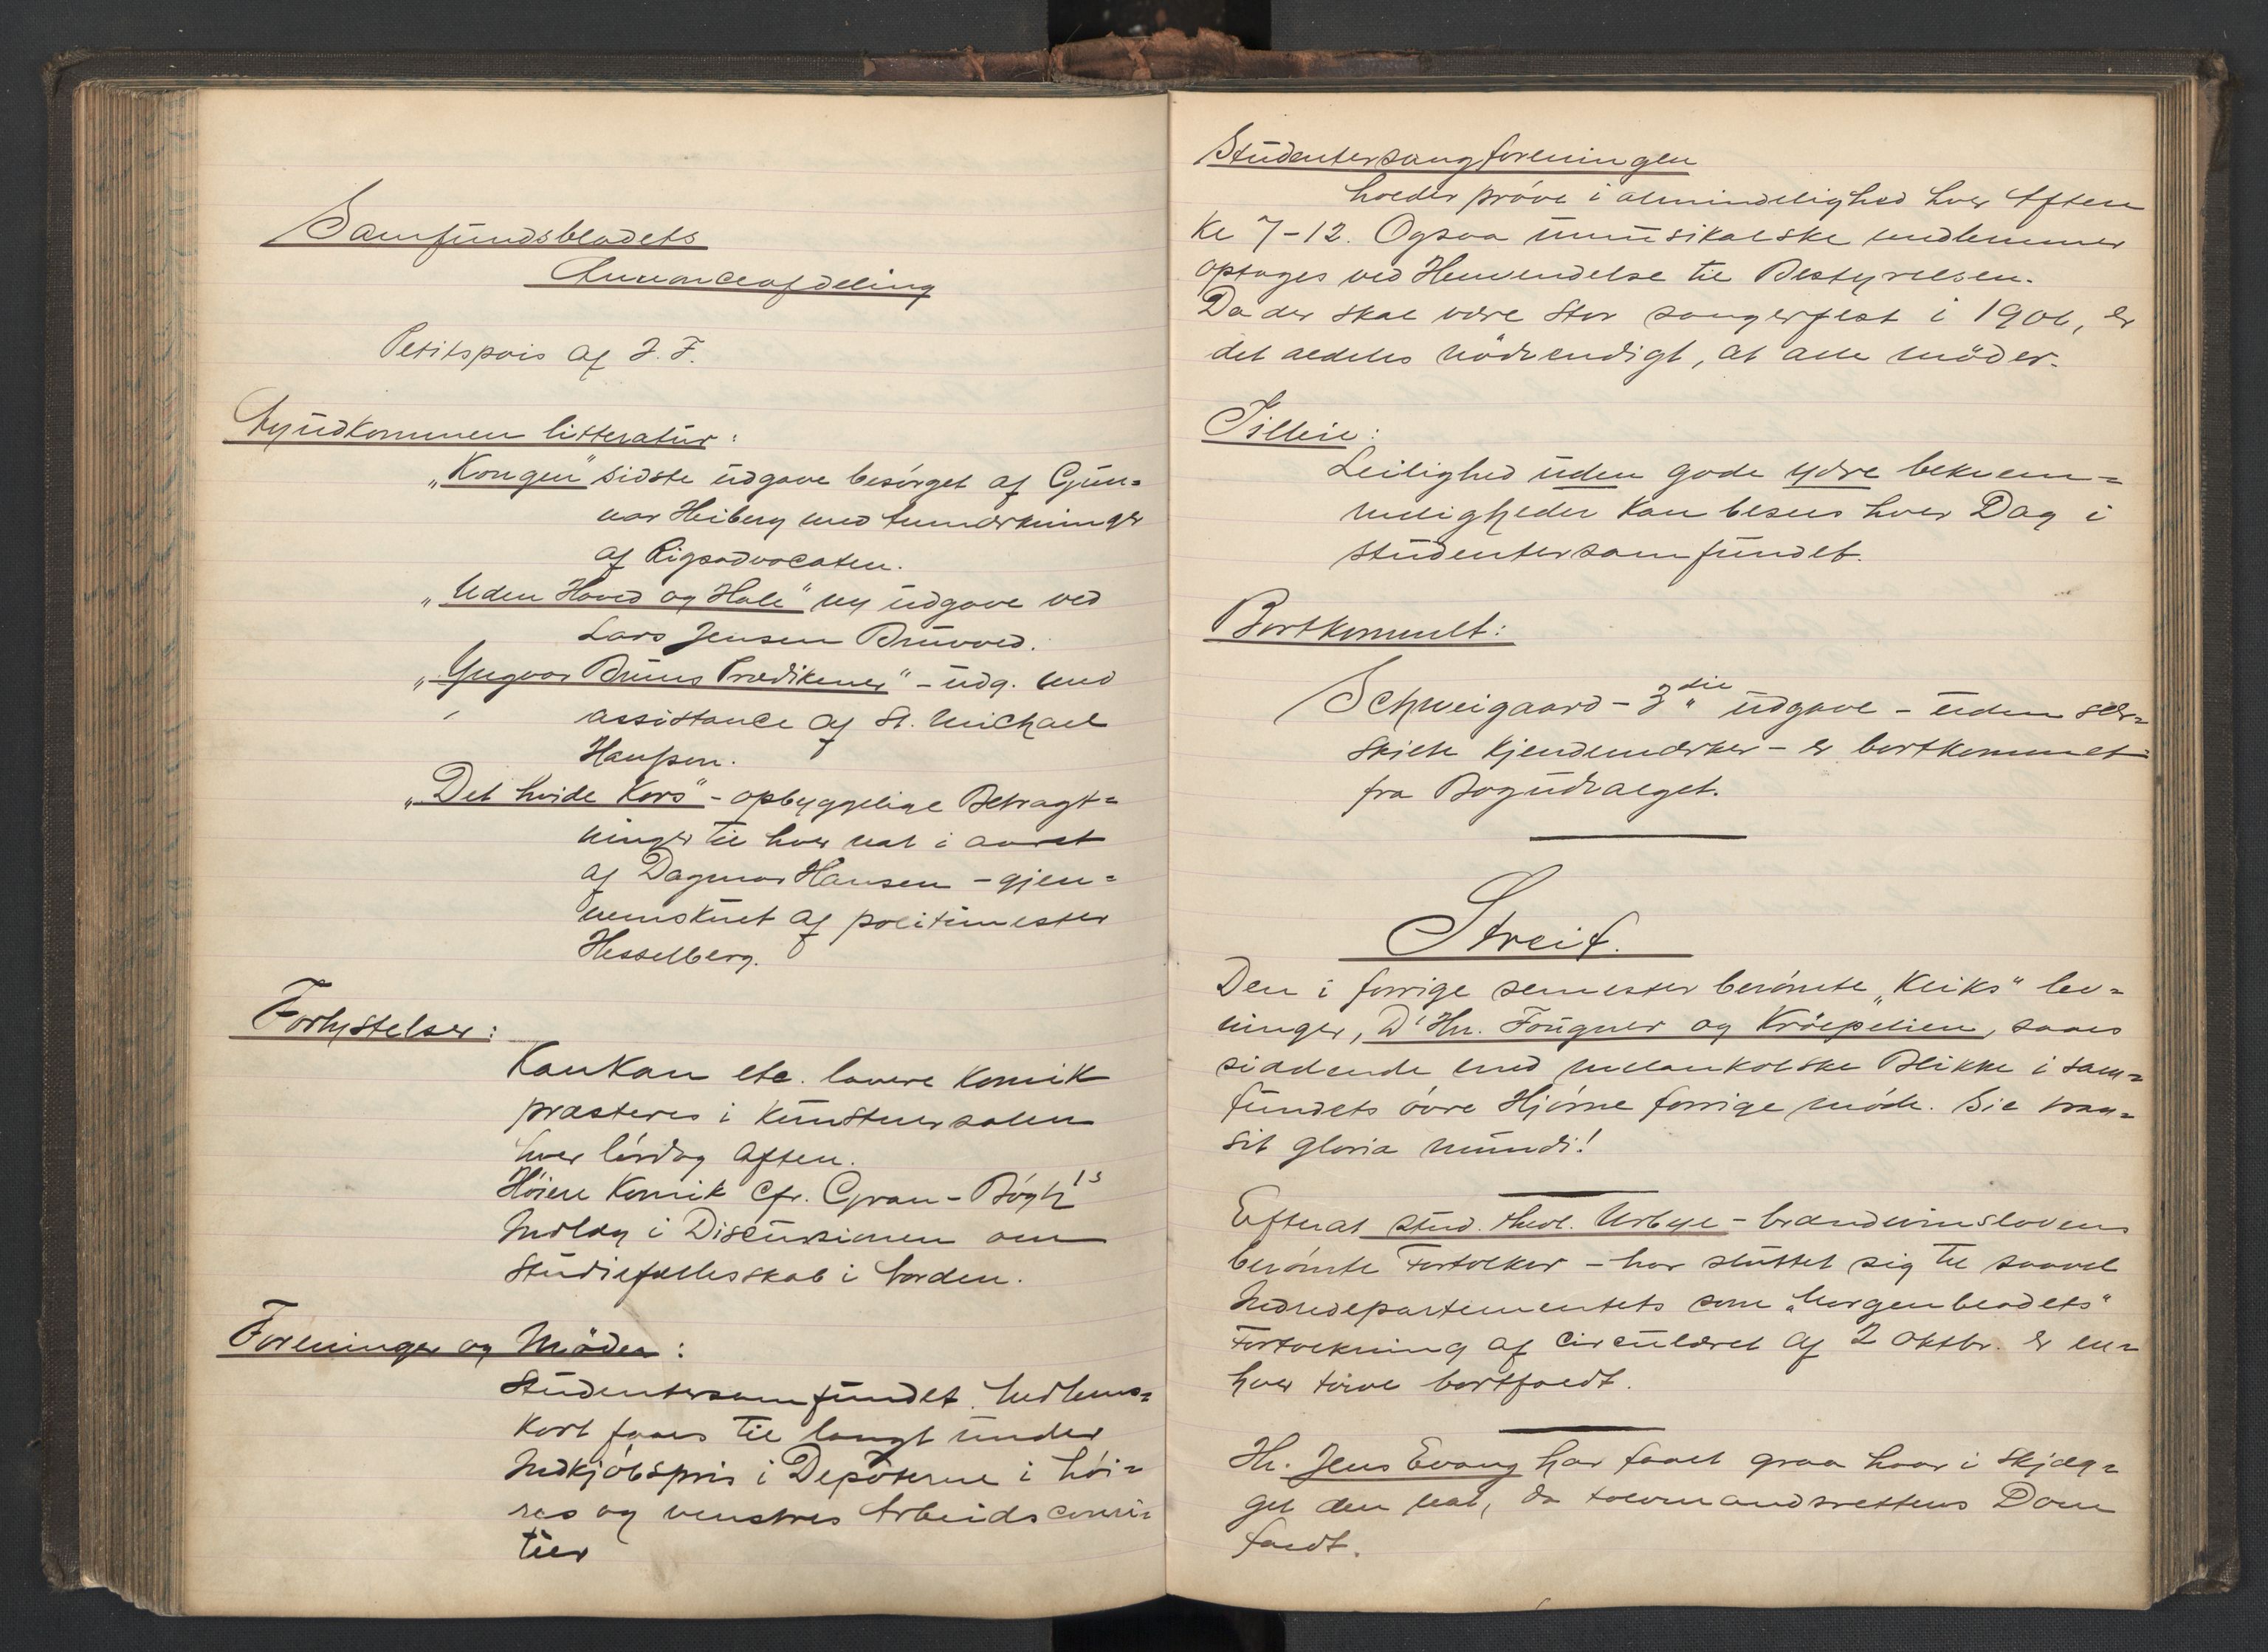 Samfundsbladets
Annonceafdeling
Petitspois af J. F.
Nyudkommen litteratur:
„Kongen“ sidste udgave besørget af Gun=
nar Heiberg med Anmærkninger
af Rigsadvocaten.
„Uden Hoved og Hale“ ny udgave ved
Lars Jensen Bruvold.
„Yngvar Bruns Prædikener“ - udg. med
assistance af St. Michael
Hansson.
„Det hvide Kors“ - opbyggelige Betragt=
ninger til hver nat i aaret
af Dagmar Hansen - gjen=
nemskuet af politimester
Hesselberg.
Forlystelser:
KanKan etc. lavere Komik
præsteres i Kunstnersalen
hver lørdag Aften.
Høiere Komik cfr. Gran - Bøgh's
Indlæg i Discussionen om
Studiefællesskab i Norden.
Foreninger og Møder:
Studentersamfundet. Medlems=
kort faaes til langt under
Indkjøbspris i Depoterne i høi=
res og venstres Arbeidscomi=
teer
Studentersangforeningen
holder prøve i almindelighed hver Aften
Kl 7-12. Ogsaa umusikalske medlemmer
optages ved Henvendelse til Bestyrelsen.
Da der skal være stor sangerfest i 1906, er
det aldeles nødvendigt, at alle møder.
Tilleie:
Leilighed uden gode ydre bekvem=
meligheder kan besees hver Dag i
Studentersamfundet.
Bortkommet:
Schweigaard - 3die udgave - uden sær=
skilte Kjendemærker - er bortkommet
fra Bogudvalget.
Streif.
Den i forrige semester berømte „Keiks“ lev=
ninger, D'Hrr. Fougner og Krøepelien, saaes
siddende med melankolske Blikke i Sam=
fundets øvre Hjørne forrige møde. Sic tran=
sit gloria mundi!
Efterat stud. theol. Urbye - brændevinslovens
berømte Fortolker - har sluttet sig til saavel
Indredepartementets som „Morgenbladets“
Fortolkning af Circulæret af 2 Oktbr. er en=
hver tvivl bortfaldt.
Hr. Jens Evang har faaet graa haar i Skjæg=
get den nat, da tolvmandsrettens Dom
faldt.